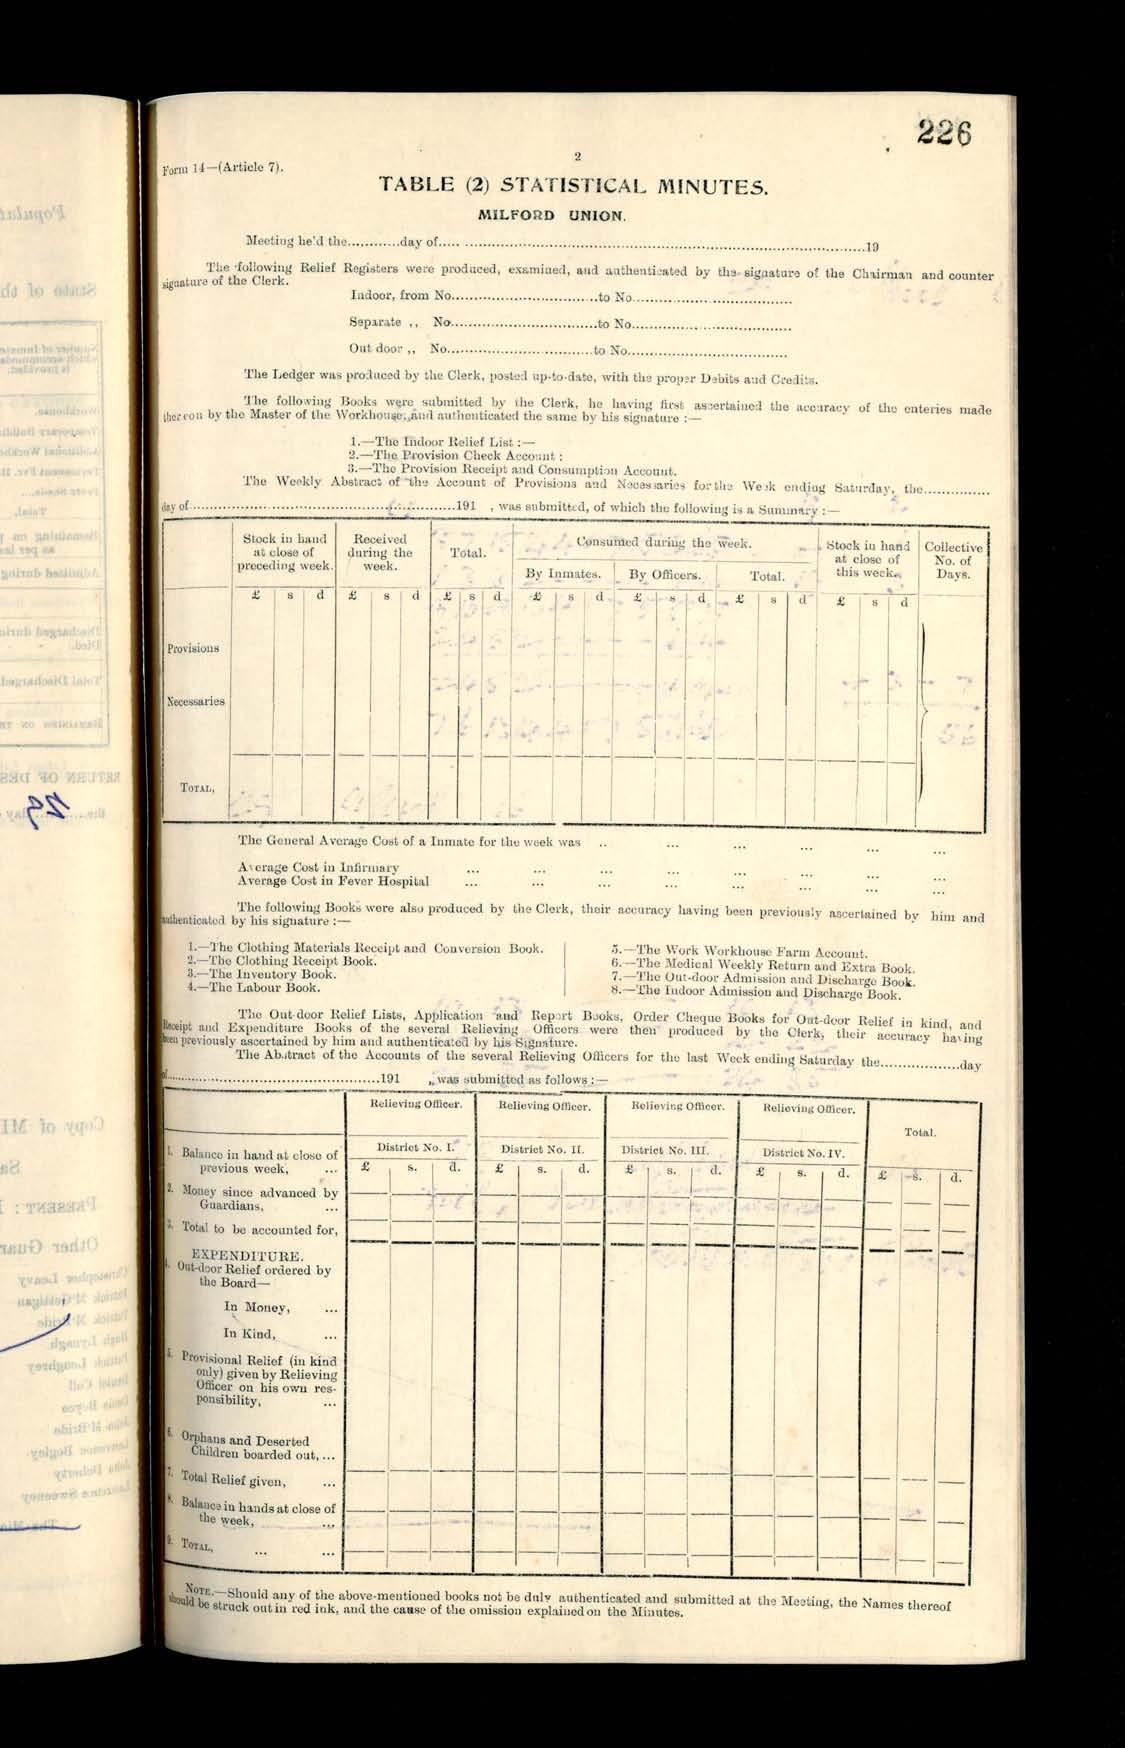 226
2
Form 14—(Article 7).
TABLE (2) STATISTICAL MINUTES.
MILFORD UNION.
Meeting he'd the............day of..... ..........................................................................................19
The following Relief Registers were produced, examined, and authenticated by the signature of the Chairman and counter
signature of the Clerk.
Indoor, from No.................................to No....................................
Separate ,, No.................................to No....................................
Out door ,, No.................................to No....................................
The Ledger was produced by the Clerk, posted up-to-date, with the proper Debits and Credits.
The following Books were submitted by the Clerk, he having first ascertained the accuracy of the enteries made
thereon by the Master of the Workhouse, and authenticated the same by his signature :—
1.—The Indoor Relief List :—
2.—The Provision Check Account :
3.—The Provision Receipt and Consumption Account.
The Weekly Abstract of the Account of Provisions and Necessaries for the Week ending Saturday, the...............
day of............................................................191 , was submitted, of which the following is a Summary :—
Stock in hand at close of preceding week. Received during the week. Total. Consumed during the week. Stock in hand at close of this week. Collective No. of Days.
By Inmates. By Officers. Total.
£ s d £ s d £ s d £ s d £ s d £ s d £ s d
Provisions
Necessaries
TOTAL,
The General Average Cost of a Inmate for the week was .. ... ... ... ... ...
Average Cost in Infirmary ... ... ... ... ... ... ... ...
Average Cost in Fever Hospital ... ... ... ... ... ... ... ...
The following Books were also produced by the Clerk, their accuracy having been previously ascertained by him and
authenticated by his signature :—
1.—The Clothing Materials Receipt and Conversion Book.
2.—The Clothing Receipt Book.
3.—The Inventory Book.
4.—The Labour Book.
5.—The Work Workhouse Farm Account.
6.—The Medical Weekly Return and Extra Book.
7.—The Out-door Admission and Discharge Book.
8.—The Indoor Admission and Discharge Book.
The Out-door Relief Lists, Application and Report Books, Order Cheque Books for Out-door Relief in kind, and
Receipt and Expenditure Books of the several Relieving Officers were then produced by the Clerk, their accuracy having
been previously ascertained by him and authenticated by his Signature.
The Abstract of the Accounts of the several Relieving Officers for the last Week ending Saturday the..................day
of................................................191 , was submitted as follows :—
Relieving Officer. Relieving Officer. Relieving Officer. Relieving Officer. Total.
District No. I. District No. II. District No. III. District No. IV.
£ s. d. £ s. d. £ s. d. £ s. d. £ s. d.
1. Balance in hand at close of
previous week, ...
2. Money since advanced by
Guardians, ...
3. Total to be accounted for,
EXPENDITURE.
4. Out-door Relief ordered by
the Board—
In Money, ...
In Kind, ...
5. Provisional Relief (in kind
only) given by Relieving
Officer on his own res-
ponsibility, ...
6. Orphans and Deserted
Children boarded out, ...
7. Total Relief given, ...
8. Balance in hands at close of
the week, ...
9. TOTAL, ... ...
NOTE.—Should any of the above-mentioned books not be duly authenticated and submitted at the Meeting, the Names thereof
should be struck out in red ink, and the cause of the omission explained on the Minutes.